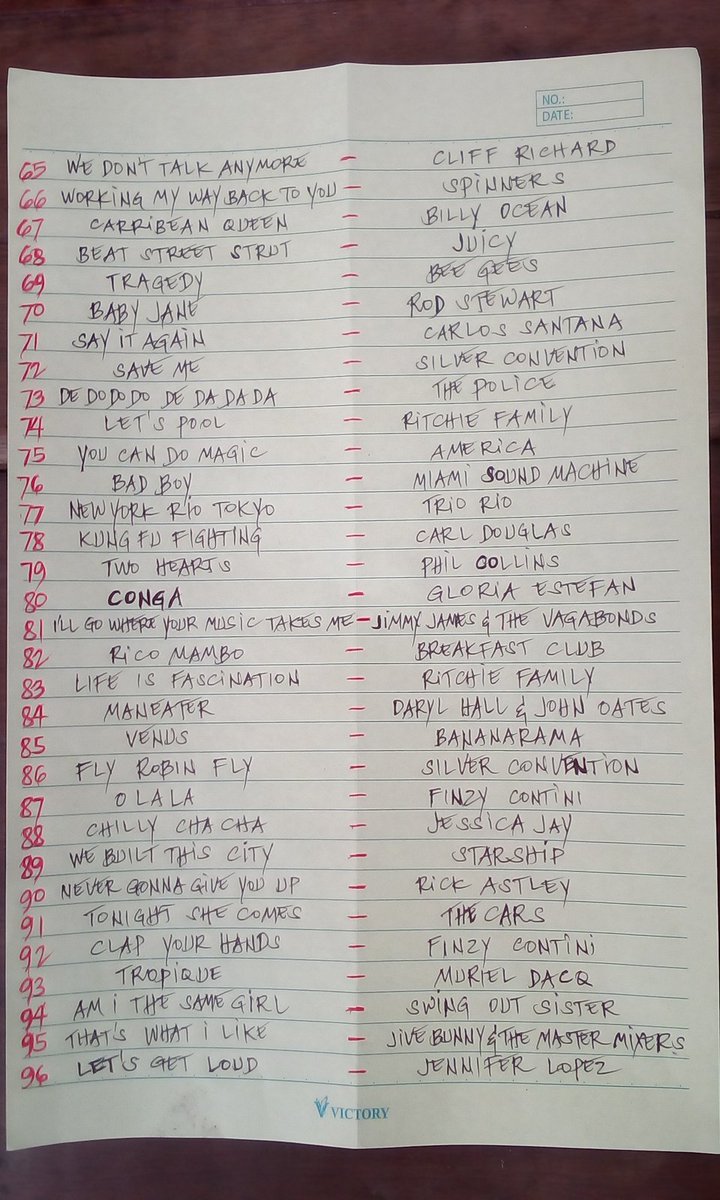 NO.:
DATE:
65 WE DON'T TALK ANYMORE - CLIFF RICHARD
66 WORKING MY WAY BACK TO YOU - SPINNERS
67 CARRIBEAN QUEEN - BILLY OCEAN
68 BEAT STREET STRUT - JUICY
69 TRAGEDY - BEE GEES
70 BABY JANE - ROD STEWART
71 SAY IT AGAIN - CARLOS SANTANA
72 SAVE ME - SILVER CONVENTION
73 DE DO DO DO DE DA DA DA - THE POLICE
74 LET'S POOL - RITCHIE FAMILY
75 YOU CAN DO MAGIC - AMERICA
76 BAD BOY - MIAMI SOUND MACHINE
77 NEW YORK RIO TOKYO - TRIO RIO
78 KUNG FU FIGHTING - CARL DOUGLAS
79 TWO HEARTS - PHIL COLLINS
80 CONGA - GLORIA ESTEFAN
81 I'LL GO WHERE YOUR MUSIC TAKES ME - JIMMY JAMES & THE VAGABONDS
82 RICO MAMBO - BREAKFAST CLUB
83 LIFE IS FASCINATION - RITCHIE FAMILY
84 MANEATER - DARYL HALL & JOHN OATES
85 VENUS - BANANARAMA
86 FLY ROBIN FLY - SILVER CONVENTION
87 O LA LA - FINZY CONTINI
88 CHILLY CHA CHA - JESSICA JAY
89 WE BUILT THIS CITY - STARSHIP
90 NEVER GONNA GIVE YOU UP - RICK ASTLEY
91 TONIGHT SHE COMES - THE CARS
92 CLAP YOUR HANDS - FINZY CONTINI
93 TROPIQUE - MURIEL DACQ
94 AM I THE SAME GIRL - SWING OUT SISTER
95 THAT'S WHAT I LIKE - JIVE BUNNY & THE MASTER MIXERS
96 LET'S GET LOUD - JENNIFER LOPEZ
VICTORY